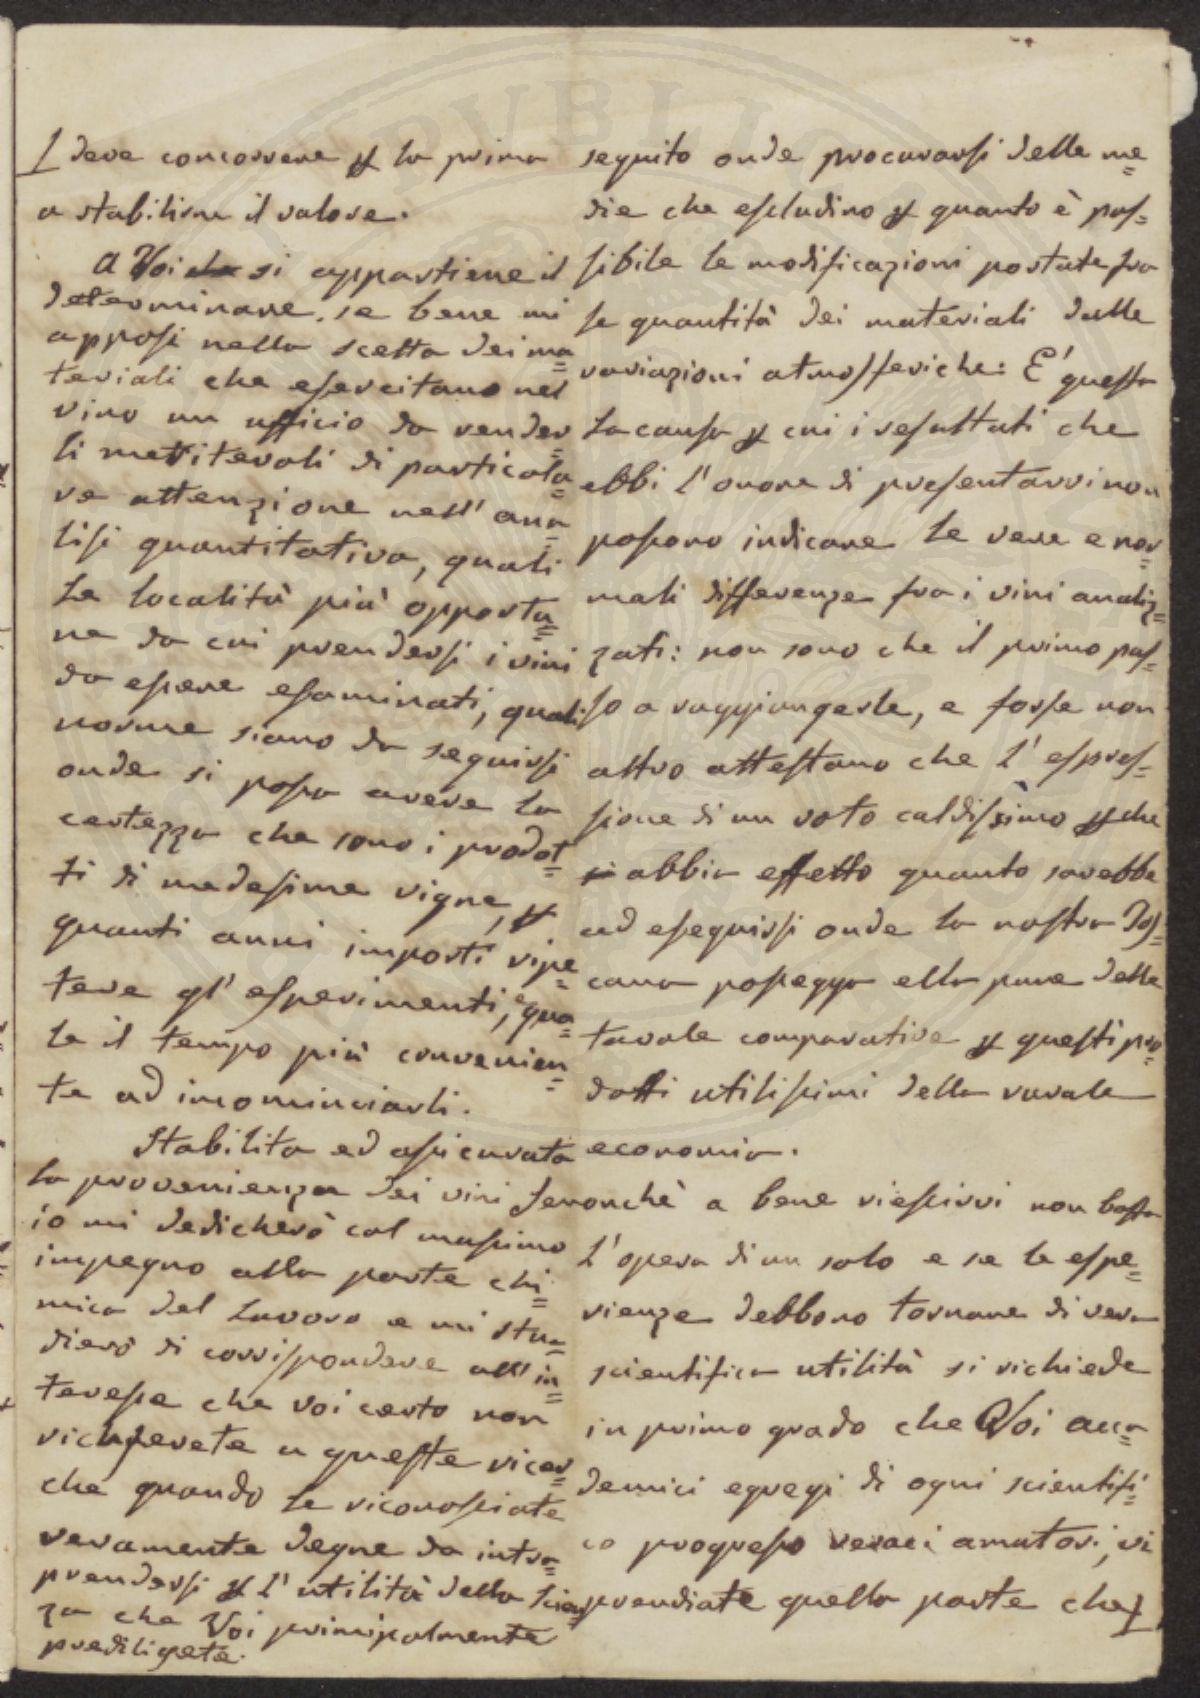 ⊥ deve concorrere ꝑ la prima
a stabilirne il valore.
A Voi si appartiene il
determinare, se bene mi
apposi nella scelta dei ma=
teriali che esercitano nel
vino un ufficio da render=
li meritevoli di particola=
re attenzione nell' ana=
lisi quantitativa, quali
le località più opportu=
ne da cui prendersi i vini
da essere esaminati, quali
norme siano da seguirsi
onde si possa avere la
certezza che sono i prodot=
ti di medesime vigne, ꝑ
quanti anni importi ripe=
tere gl' esperimenti, e qua=
le il tempo più convenien=
te ad incominciarli.
Stabilita ed assicurata
la provenienza dei vini
io mi dedicherò col massimo
impegno alla parte chi=
mica del lavoro e mi stu=
dierò di corrispondere all' in=
teresse che voi certo non
ricuserete a queste ricer=
che quando le riconosciate
veramente degne da intra=
prendersi ꝑ l' utilità della scien=
za che Voi principalmente
prediligete.
seguito onde procurarsi delle me=
die che escludino ꝑ quanto è pos=
sibile le modificazioni portate fra
le quantità dei materiali dalle
variazioni atmosferiche: E' questa
la causa ꝑ cui i resultati che
ebbi l' onore di presentarvi non
possono indicare le vere e nor=
mali differenze fra i vini analiz=
zati: non sono che il primo pas=
so a raggiungerle, e forse non
altro attestano che l' espres=
sione di un voto caldissimo ꝑ che
abbia effetto quanto sarebbe
ad eseguirsi onde la nostra Tos=
cana possegga ella pure delle
tavole comparative ꝑ questi pro=
dotti utilissimi della rurale
economia.
Senonchè a bene riescirvi non basta
l' opera di un solo e se le espe=
rienze debbono tornare di vera
scientifica utilità si richiede
in primo grado che Voi acca=
demici egregi di ogni scientifi=
co progresso veraci amatori, vi
prendiate quella parte che ⊥